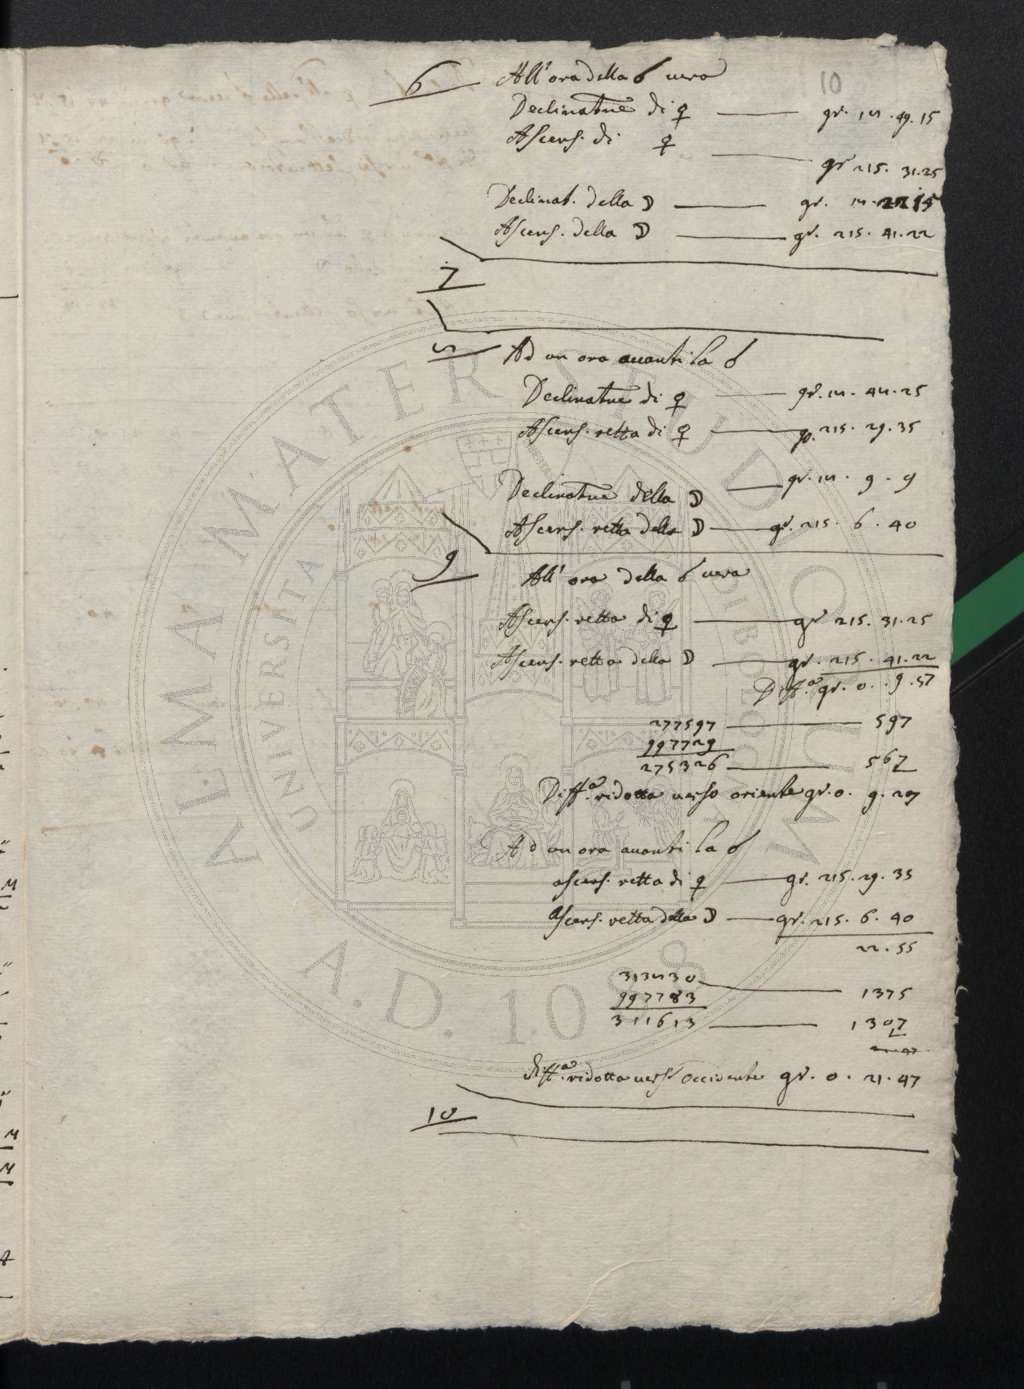 10
6 All' ora della ☌ vera
Declinatne di ♀ — gr. 14. 49. 15
Ascens. di ♀ — gr 215. 31. 25
Declinat. della ☽ — gr. 14.
Ascens. della ☽ — gr. 215. 41. 22
7
8 Ad un ora avanti la ☌
Declinatne di ♀ — gr. 14. 48. 25
Ascens. retta di ♀ — gr. 215. 29. 35
Declinatne della ☽ — gr. 14. 9. 9
Ascens. retta della ☽ — gr. 215. 6. 40
9 All' ora della ☌ vera
Ascens. retta di ♀ — gr 215. 31. 25
Ascens. retta della ☽ — gr. 215. 41. 22
Diffa. gr. 0. 9. 57
277597 — 597
997729
275326 — 567
Diffa. ridotta verso oriente gr. 0. 9. 27
Ad un ora avanti la ☌
ascens. retta di ♀ — gr. 215. 29. 35
Ascens. retta della ☽ — gr. 215. 6. 40
22. 55
313830 — 1375
997783
311613 — 1307
diffa. ridotta verso occidente gr. 0. 21. 47
10
ALMA MATER STUDIORUM
UNIVERSITÀ DI BOLOGNA
A.D. 1088